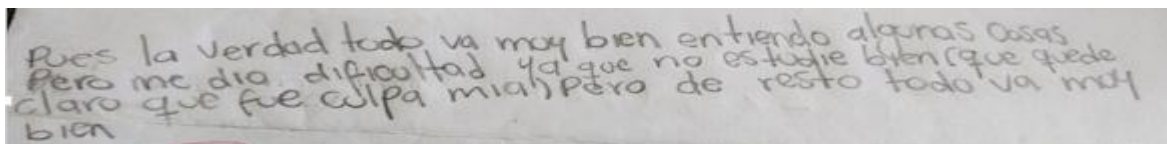 Pues la verdad todo va muy bien entiendo algunas cosas
Pero me dio dificultad ya que no estudie bien (que quede
claro que fue culpa mia) pero de resto todo va muy
bien